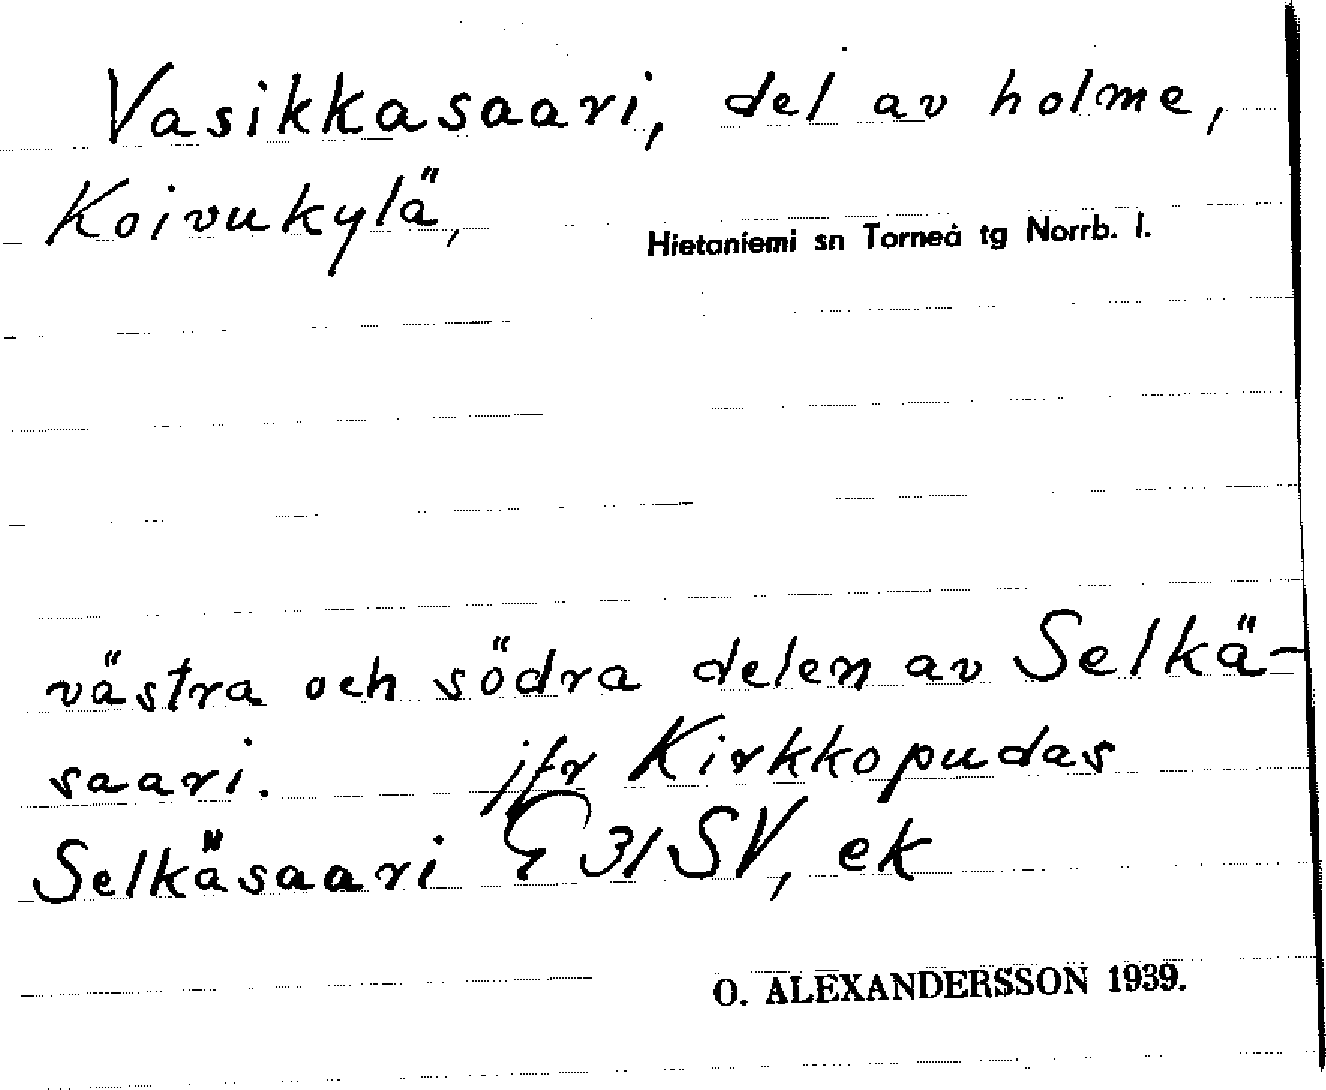 Vasikkasaari, del av holme,
Koivukylä,
Hietaniemi sn Torneå tg Norrb. l.
västra och södra delen av Selkä-
saari. jfr Kirkkopudas
Selkäsaari 31 SV, ek
O. ALEXANDERSSON 1939.